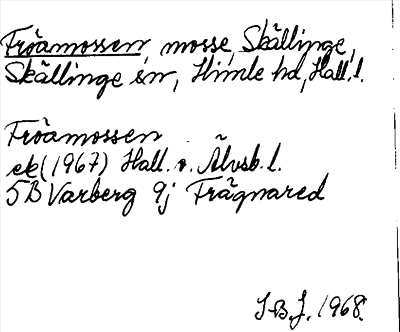 Fröamossen, mosse, Skällinge,
Skällinge sn, Himle hd, Hall. l.
Fröamossen
ek (1967) Hall. o. Älvsb. l.
5B Varberg 9j Frägnared
I.B.J. 1968.